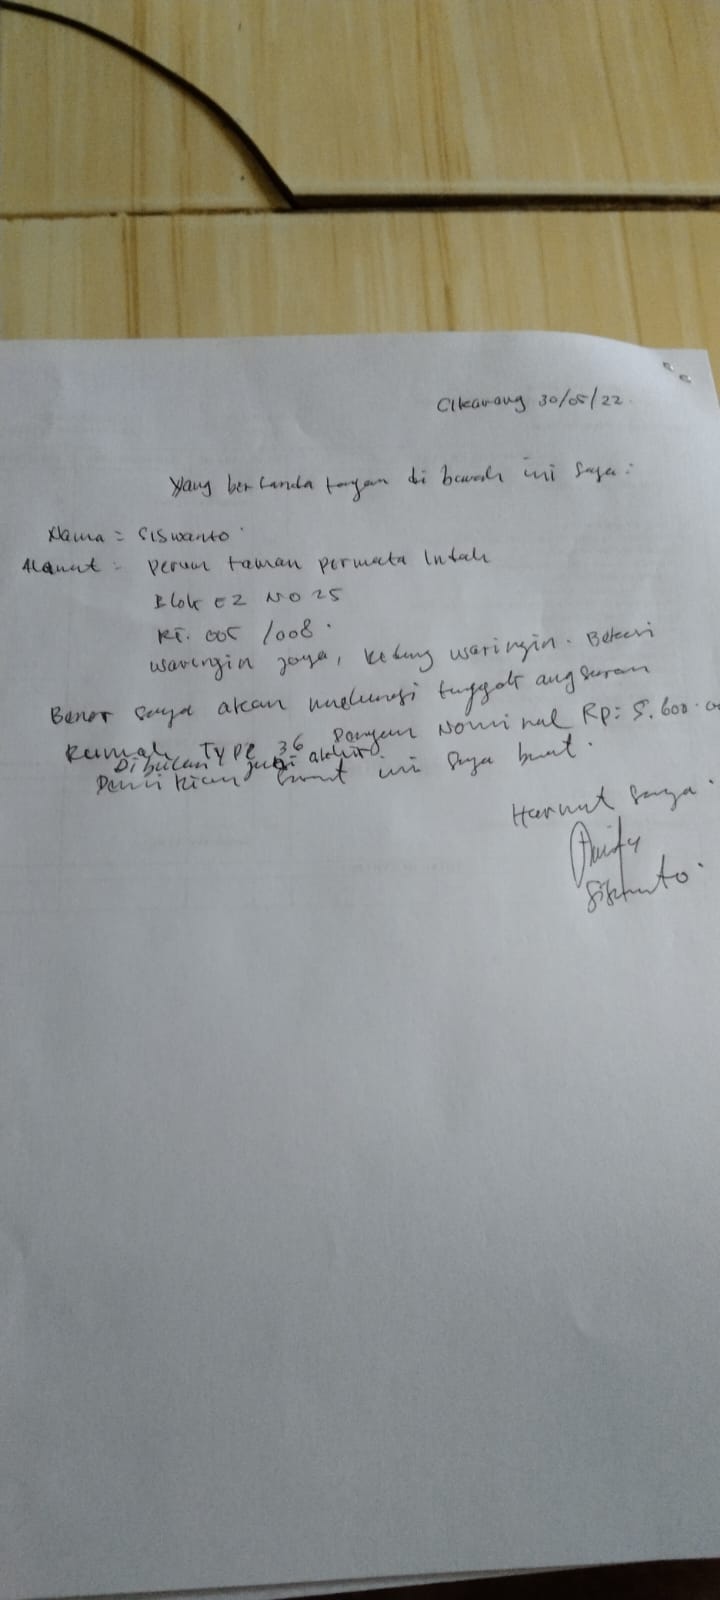 Cikarang 30/05/22.
Yang bertanda tangan di bawah ini saya:
Nama = Siswanto
Alamat: perum taman permata Indah
Blok E2 NO 25
RT. 005 /008.
waringin jaya, kedung waringin. Bekasi
Benar saya akan melunasi tunggak angsuran
Rumah TYPE 36 Dengan Nominal Rp: 5.600.00
Dibulan juni akhir
Demikian surat ini saya buat.
Hormat saya.
Siswanto.